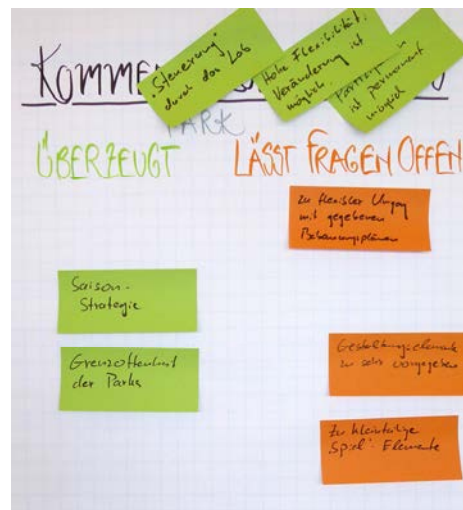 "Steuerung"
durch das Lab
Hohe Flexibilität:
Veränderung ist
möglich
ist permanent
möglich
KOMME
PARK
ÜBERZEUGT
LÄSST FRAGEN OFFEN
zu flexibler Umgang
mit gegebenen
Bebauungsplänen
Saison-
Strategie
Grenzoffenheit
der Parks
Gestaltungselemente
zu sehr vorgegeben
Zu kleinteilige
"Spiel"-Elemente